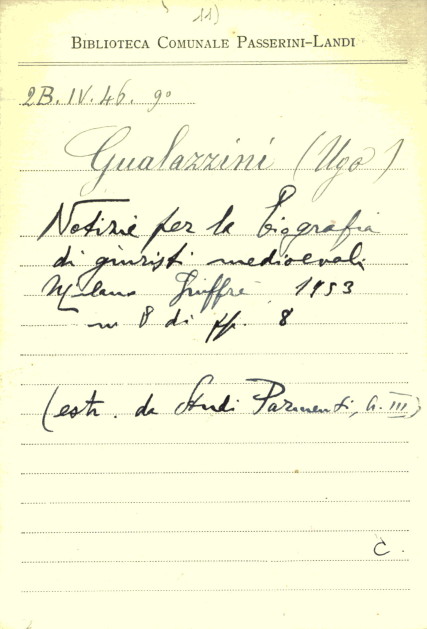 11)
BIBLIOTECA COMUNALE PASSERINI-LANDI
2B. IV. 46. 9º
Gualazzini (Ugo)
Notizie per la biografia
di giuristi medioevali
Milano Giuffrè 1953
in 8 di pp. 8
(estr. da Studi Parmensi, a. III)
C.